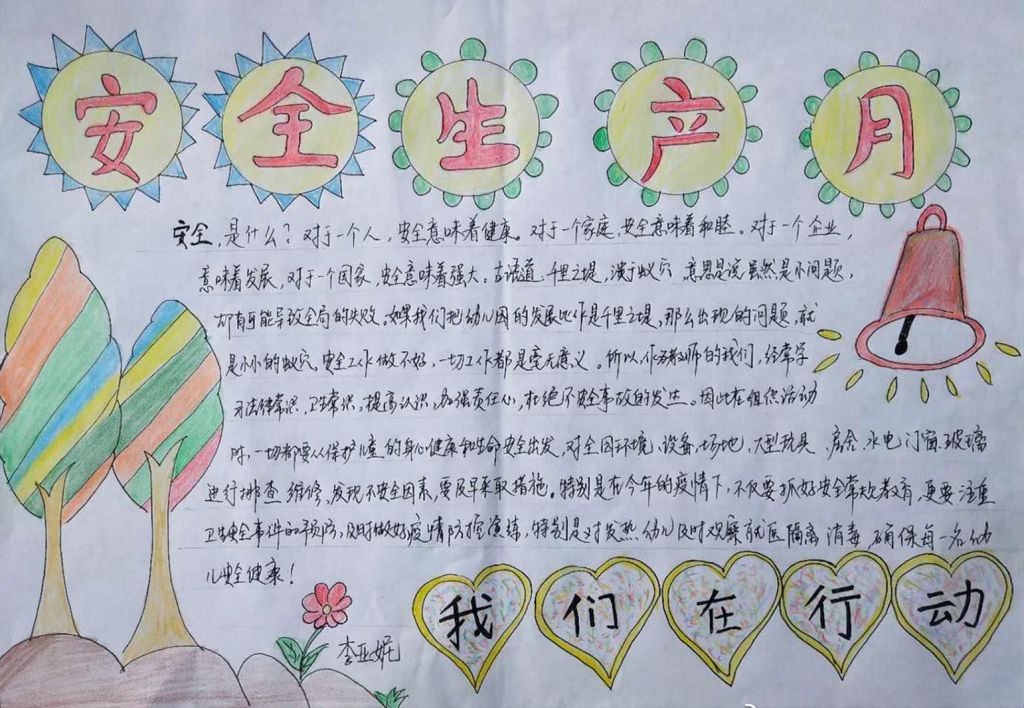 安全生产月
安全,是什么?对于一个人,安全意味着健康。对于一个家庭,安全意味着和睦。对于一个企业,
意味着发展,对于一个国家,安全意味着强大。古语道:千里之堤,溃于蚁穴 意思是说虽然是小问题,
却有可能导致全局的失败。如果我们把幼儿园的发展比作是千里之堤,那么出现的问题,就
是小小的蚁穴。安全工作做不好,一切工作都是毫无意义。所以作为教师的我们,经常学
习法律常识,卫生常识,提高认识,加强责任心,杜绝不安全事故的发生。因此在组织活动
时,一切都要从保护儿童的身心健康和生命安全出发,对全园环境、设备、场地、大型玩具、房舍、水电、门窗、玻璃
进行排查 维修,发现不安全因素,要及早采取措施。特别是在今年的疫情下,不仅要抓好安全常规教育,更要注重
卫生安全事件的预防,及时做好疫情防控演练,特别是对发热幼儿及时观察就医隔离 消毒,确保每一名幼
儿安全健康!
李亚妮
我们在行动